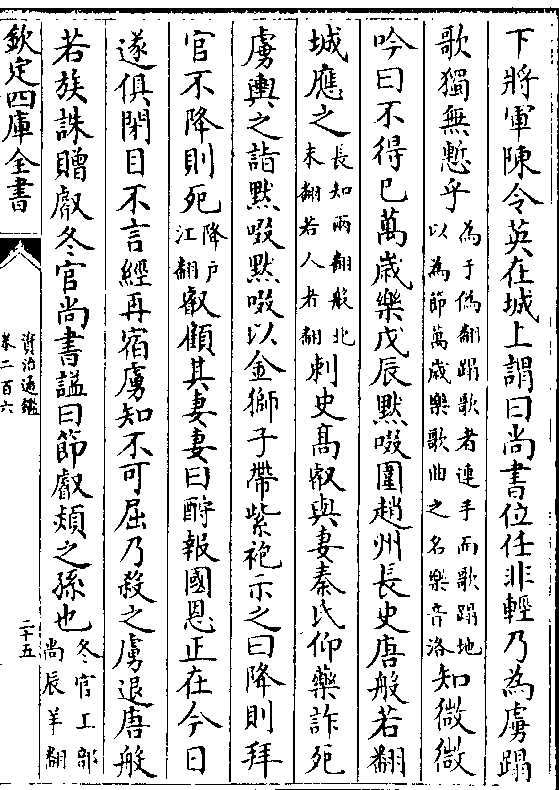 下將軍陳令英在城上謂曰尚書位任非輕乃為虜蹋
歌獨無慙乎為于偽翻蹋歌者連手而歌蹋地以為節萬嵗樂歌曲之名樂音洛知微微
吟曰不得已萬嵗樂戊辰黙啜圍趙州長史唐般若翻
城應之長知兩翻般北末翻若人者翻刺史髙叡與妻秦氏仰藥詐死
虜輿之詣黙啜黙啜以金獅子帶紫袍示之曰降則拜
官不降則死降户江翻叡顧其妻妻曰酧報國恩正在今日
遂俱閉目不言經再宿虜知不可屈乃殺之虜退唐般
若族誅贈叡冬官尚書諡曰節叡熲之孫也冬官工部尚辰羊翻
欽定四庫全書
資治通鑑
卷二百六
二十五